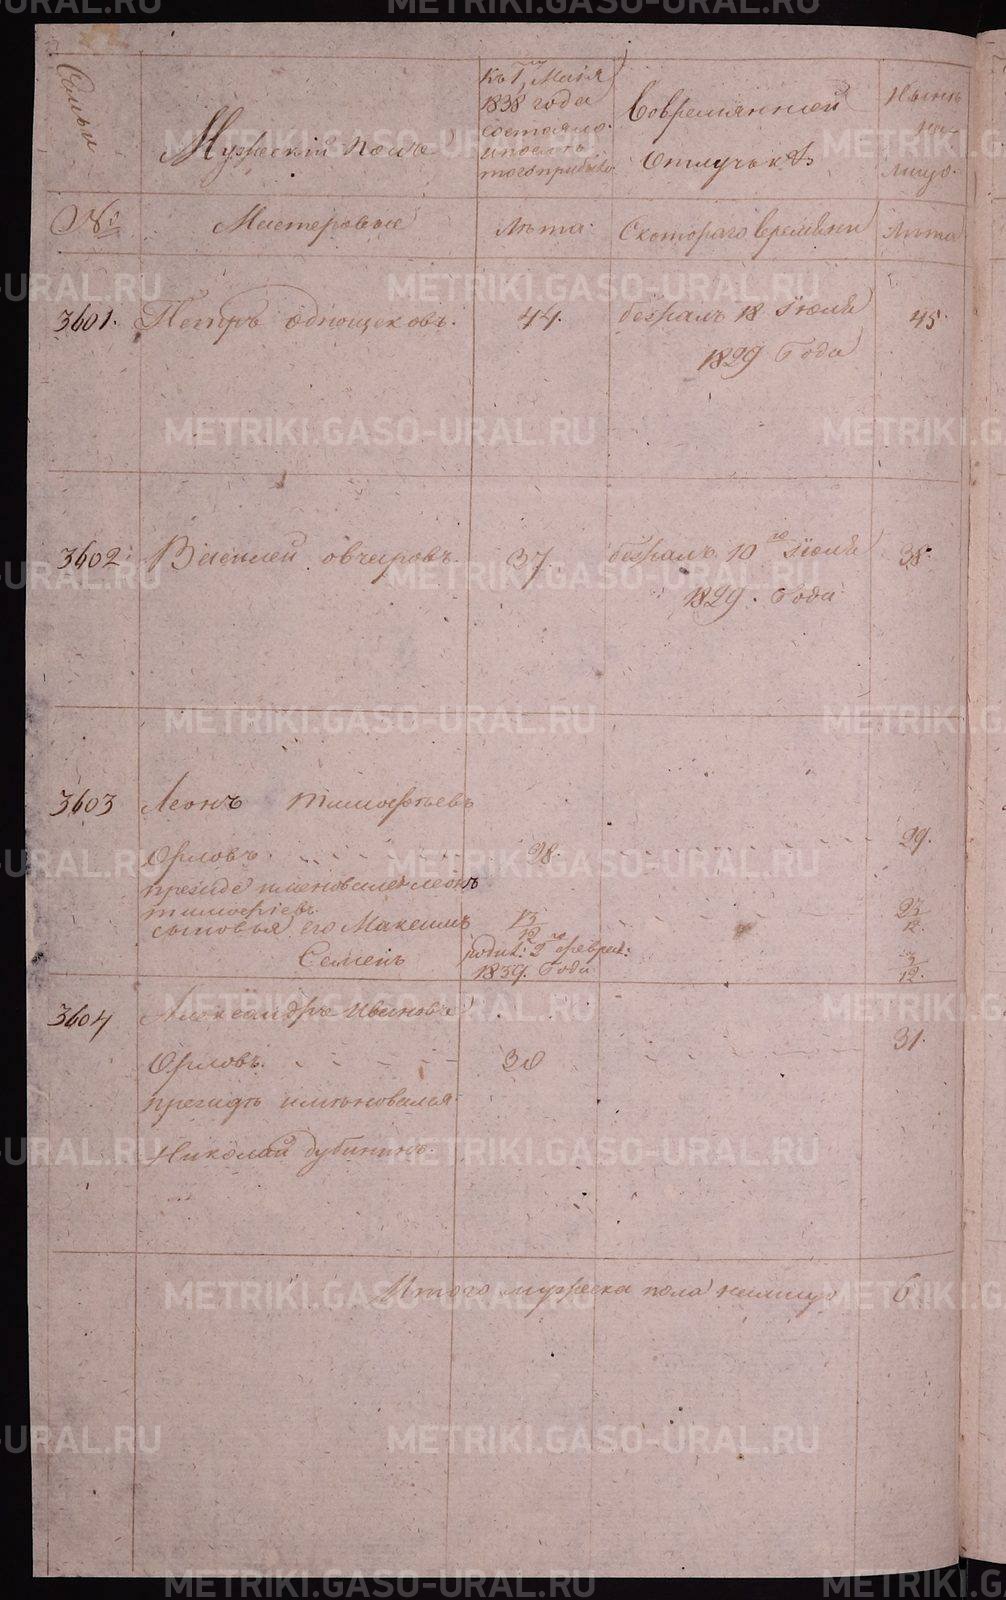 METRIKI.GASO-URAL.RU
Семьи
Мужескiй полъ
Къ 1му Маiя
1838 года
состояло
и после
того прибыло
Вовременной
Отлучькѣ
Нынѣ
на-
лицо.
№
Мастеровые
Лѣта.
Скотораго времѣни
Лѣта
3601.
Петръ Однощековъ.
44.
бежалъ 18 Iюля
1829 Года
45.
3602.
Василей овчаровъ.
37.
бежалъ 10го Iюля
1829. Года
38.
3603
Леонъ тимофѣевъ
Орловъ.
28.
29.
прежде именовался леонъ
тимофiевъ.
сыновья его Максимъ
13/12
23/12.
Семенъ
родил: 2го феврал:
1839. Года
3/12.
3604
Александръ Ивановъ
Орловъ.
30
31.
прежидѣ имѣновался
Николай дубининъ.
Итого мужеска пола налицо
6.